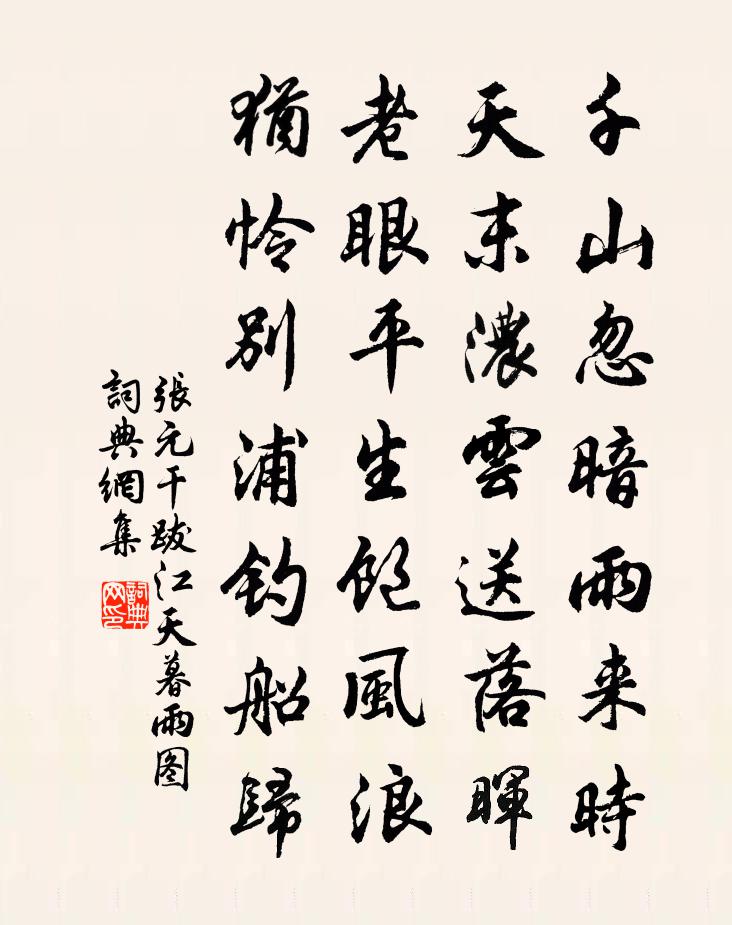 千山忽暗雨来時
天末濃雲送落暉
老眼平生飽風浪
猶怜別浦釣船歸
張元干跋江天暮雨图
詞典網集
詞典
网印